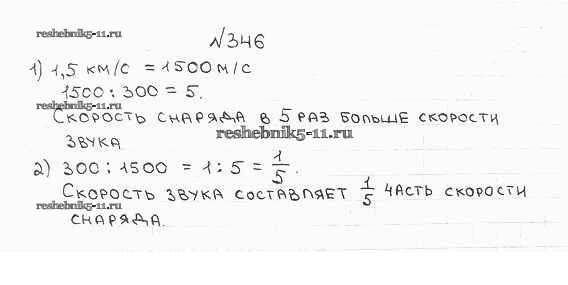 reshebnik5-11.ru
№346
1) 1,5 км/с = 1500 м/с
1500 : 300 = 5.
reshebnik5-11.ru
Скорость снаряда в 5 раз больше скорости
reshebnik5-11.ru
звука
2) 300 : 1500 = 1 : 5 = 1/5.
Скорость звука составляет 1/5 часть скорости
reshebnik5-11.ru
снаряда.